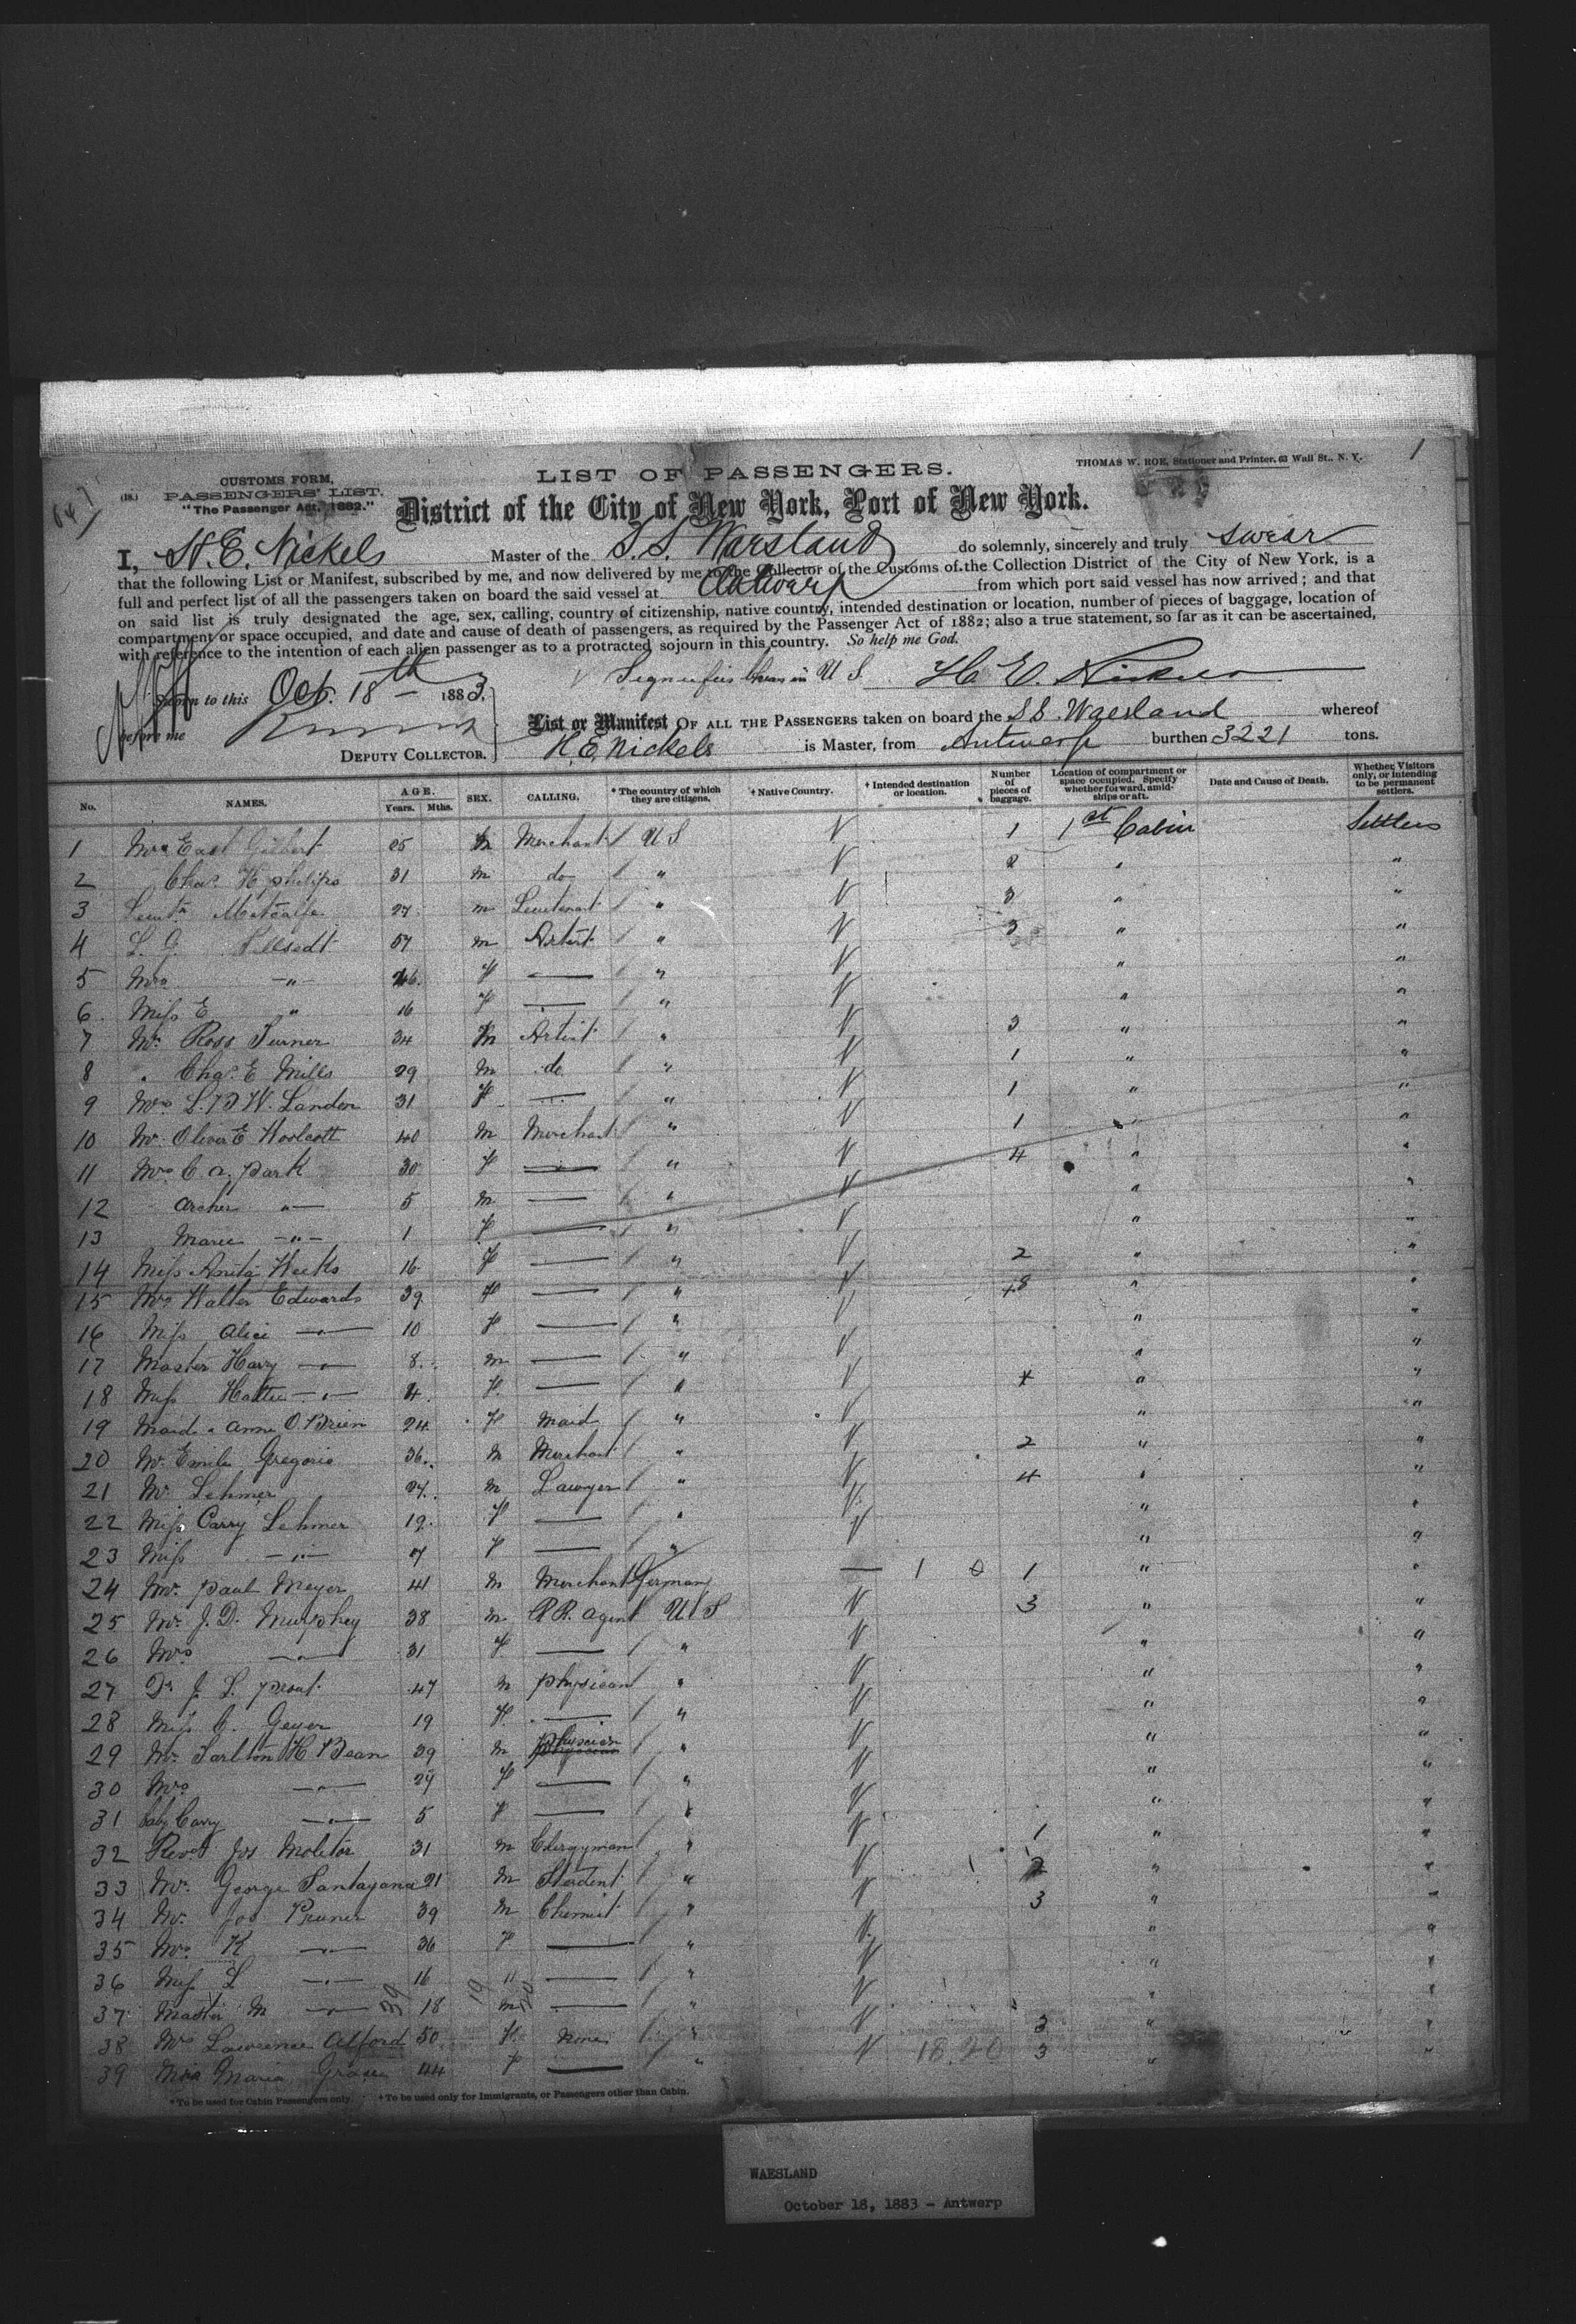 1
CUSTOMS FORM,
(18.) PASSENGERS' LIST.
"The Passenger Act, 1882."
LIST OF PASSENGERS.
THOMAS W. ROE, Stationer and Printer, 63 Wall St., N. Y.
District of the City of New York, Port of New York.
I, H. E. Nickels Master of the S. S. Waesland do solemnly, sincerely and truly swear
that the following List or Manifest, subscribed by me, and now delivered by me to the Collector of the Customs of the Collection District of the City of New York, is a
full and perfect list of all the passengers taken on board the said vessel at Antwerp from which port said vessel has now arrived; and that
on said list is truly designated the age, sex, calling, country of citizenship, native country, intended destination or location, number of pieces of baggage, location of
compartment or space occupied, and date and cause of death of passengers, as required by the Passenger Act of 1882; also a true statement, so far as it can be ascertained,
with reference to the intention of each alien passenger as to a protracted sojourn in this country. So help me God.
Sworn to this Oct. 18th 1883. √ Signifies in U S. H. E. Nickels
before me
DEPUTY COLLECTOR.
List or Manifest OF ALL THE PASSENGERS taken on board the S S. Waesland whereof
H. E. Nickels is Master, from Antwerp burthen 3221 tons.
No. NAMES. AGE. Years. Mths. SEX. CALLING. * The country of which they are citizens. † Native Country. † Intended destination or location. Number of pieces of baggage. Location of compartment or space occupied. Specify whether forward, amidships or aft. Date and Cause of Death. Whether Visitors only, or intending to be permanent settlers.
1 Gilbert 25 m Merchant U S √ 1 1st Cabin Settlers
2 Chas. H. philips 31 m do " √ 2 " "
3 Lieut. Metcalfe 27 m Lieutenant " √ 3 " "
4 L. G. 57 m Artist " √ 3 " "
5 Mrs —"— 46 f — " √ " "
6 Miss E " 16 f — " √ " "
7 Mr. Ross Turner 34 m Artist " √ 3 " "
8 " Chas. E Mills 29 m do. " √ 1 " "
9 Mrs L. B W. Landon 31 f — " √ 1 " "
10 Mr. Oliver E Woolcott 40 m Merchant " √ 1 " "
11 Mrs C. a. park 30 f — " √ 4 " "
12 Archer "— 5 m — " √ " "
13 Marie —"— 1 f — " √ " "
14 Miss Anita Weeks 16 f — " √ 2 " "
15 Mrs Walter Edwards 39 f — " √ 8 " "
16 Miss Alice —"— 10 f — " √ " "
17 Master Harry —"— 8 m — " √ " "
18 Miss Hattie —"— 4 f — " √ " "
19 Maid " Anne O'Brien 24 f Maid " √ " "
20 Mr. Emile Gregorie 36 m Merchant " √ 2 " "
21 Mr. Lehmer m Lawyer " √ 4 " "
22 Miss Carry Lehmer 19 f — " √ " "
23 Miss —"— 7 f — " √ " "
24 Mr. paul Meyer 41 m Merchant Germany — 1 0 1 " "
25 Mr. J. D. Murphey 38 m R R. agent U S √ 3 " "
26 Mrs —"— 31 f — " √ " "
27 Dr J. L. prout 47 m physician " √ " "
28 Miss C. Geyer 19 f — " √ " "
29 Mr. Tarlton H Bean 39 m physician " √ " "
30 Mrs —"— 29 f — " √ " "
31 baby Carry —"— 5 f — " √ " "
32 Revd Jos Molitor 31 m Clergyman " √ 1 " "
33 Mr. George Santayana 21 m Student " √ 2 " "
34 Mr. Jos Pruner 39 m Chemist " √ 3 " "
35 Mrs. K —"— 36 f — " √ " "
36 Miss L —"— 16 " — " √ " "
37 Master M —"— 18 m — " √ " "
38 Mrs Lawrence Alford 50 f None " √ 3 " "
39 Maria 44 f — " √ 18.20 3 " "
* To be used for Cabin Passengers only. † To be used only for Immigrants, or Passengers other than Cabin.
WAESLAND
October 18, 1883 - Antwerp